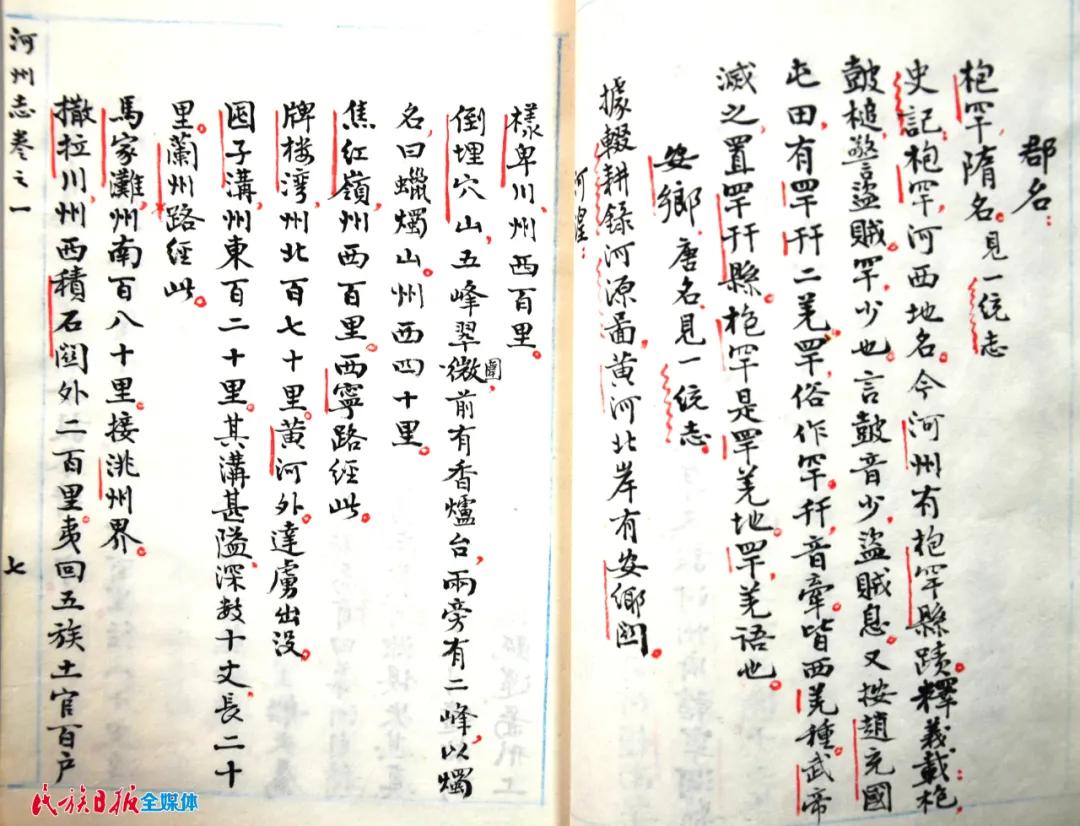 郡名：
枹罕，隋名。見一统志
史記：枹罕，河西地名。今河州有枹罕縣蹟。釋義載：枹，
鼓槌，警盜賊。罕，少也。言鼓音少，盜賊息。又按趙充國
屯田有䍐幵二羌，䍐，俗作罕。幵，音牽。皆西羌種。武帝
滅之，置䍐幵縣。枹罕是䍐羌地。䍐，羌語也。
安鄉，唐名，見一统志。
據輟耕錄河源啚，黃河北岸有安鄉関。
河湟：
樣卑川，州西百里。
倒埋穴山，五峰翠微，前有香爐台，兩旁有二峰，以燭
圍
名，曰蠟燭山。州西四十里。
焦紅嶺，州西百里。西寧路經此。
牌楼灣，州北百七十里。黃河外，達虜出没。
囤子溝，州東百二十里。其溝甚隘，深数十丈，長二十
里。蘭州路經此。
馬家灘，州南百八十里，接洮州界。
撒拉川，州西積石関外二百里。夷回五族土官百户
河州志卷之一
七
民族日报全媒体